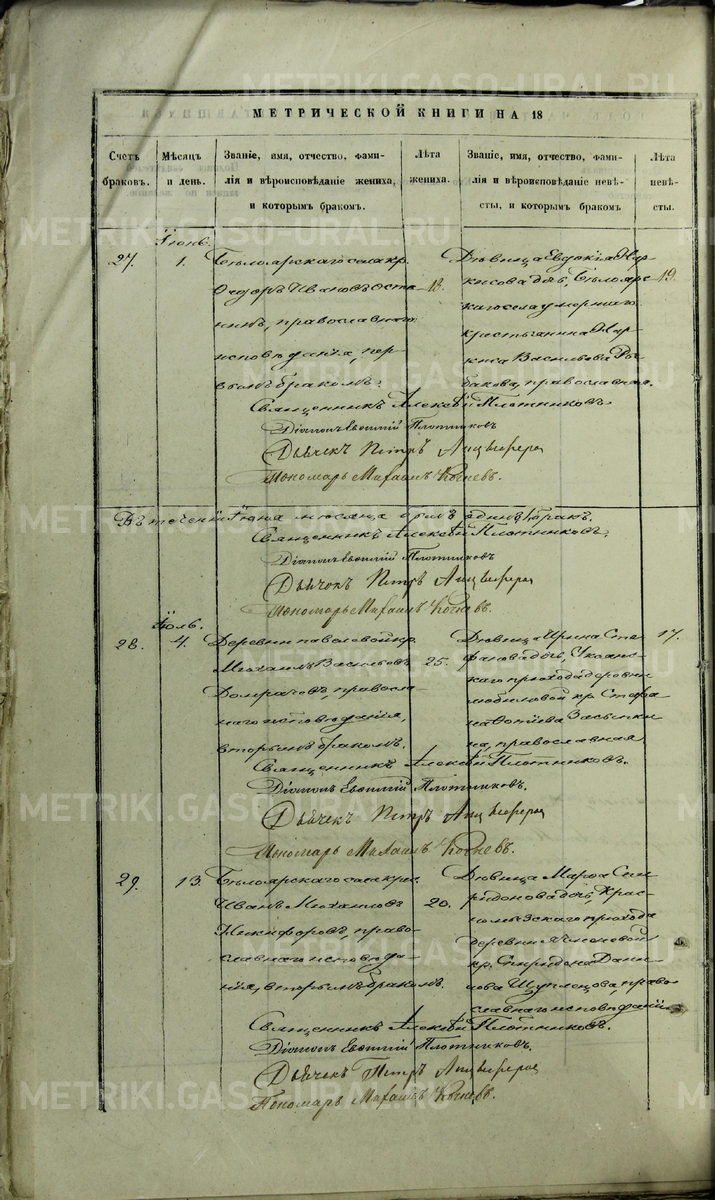 МЕТРИЧЕСКОЙ КНИГИ НА 18
Счетъ браковъ.
Мѣсяцъ и день.
Званіе, имя, отчество, фами-
лія и вѣроисповѣданіе жениха,
и которымъ бракомъ.
Лѣта жениха.
Званіе, имя, отчество, фами-
лія и вѣроисповѣданіе невѣ-
сты, и которымъ бракомъ
Лѣта невѣ-
сты.
Іюнь.
27. 1.
Бѣлоярскаго села кр.
Ѳедоръ Ивановъ Оста-
нинъ, православнаго
исповѣданія, пер-
вымъ бракомъ.
18.
Дѣвица Евдокія Нар-
кисова дочь, Бѣлояр-
скаго села умершаго
крестьянина Нар-
киса Васильева Ры-
бакова, православная.
19.
Священникъ Алексѣй Плотниковъ
Діаконъ Евѳимій Плотниковъ
Дьячекъ Петръ
Пономарь Михаилъ
Въ теченіи Іюня месяца былъ одинъ бракъ.
Священникъ Алексѣй Плотниковъ.
Діаконъ Евѳимій Плотниковъ
Дьячокъ Петръ
Пономарь Михаилъ
Іюль.
28. 4.
Деревни кр.
Михаилъ Васильевъ
Домрачовъ, правосла-
наго исповѣданія,
вторымъ бракомъ.
25.
Дѣвица Ирина Сте-
фанова дочь,
скаго прихода деревни
кр. Стефа-
на Засыпки-
на, православная
17.
Священникъ Алексѣй Плотниковъ.
Діаконъ Евѳимій Плотниковъ.
Дьячекъ Петръ
Пономарь Михаилъ
29. 13.
Бѣлоярскаго села крес.
Иванъ Михаиловъ
Никифоровъ, право-
славнаго исповѣда-
нія, вторымъ бракомъ.
20.
Дѣвица Марѳа Спи-
ридонова дочь, Крас-
прихода
деревни
кр. Спиридона Дани-
лова Щуплецова, право-
славнаго исповѣданія
Священникъ Алексѣй Плотниковъ.
Діаконъ Евѳимій Плотниковъ.
Дьячекъ Петръ
Пономарь Михаилъ
METRIKI.GASO-URAL.RU